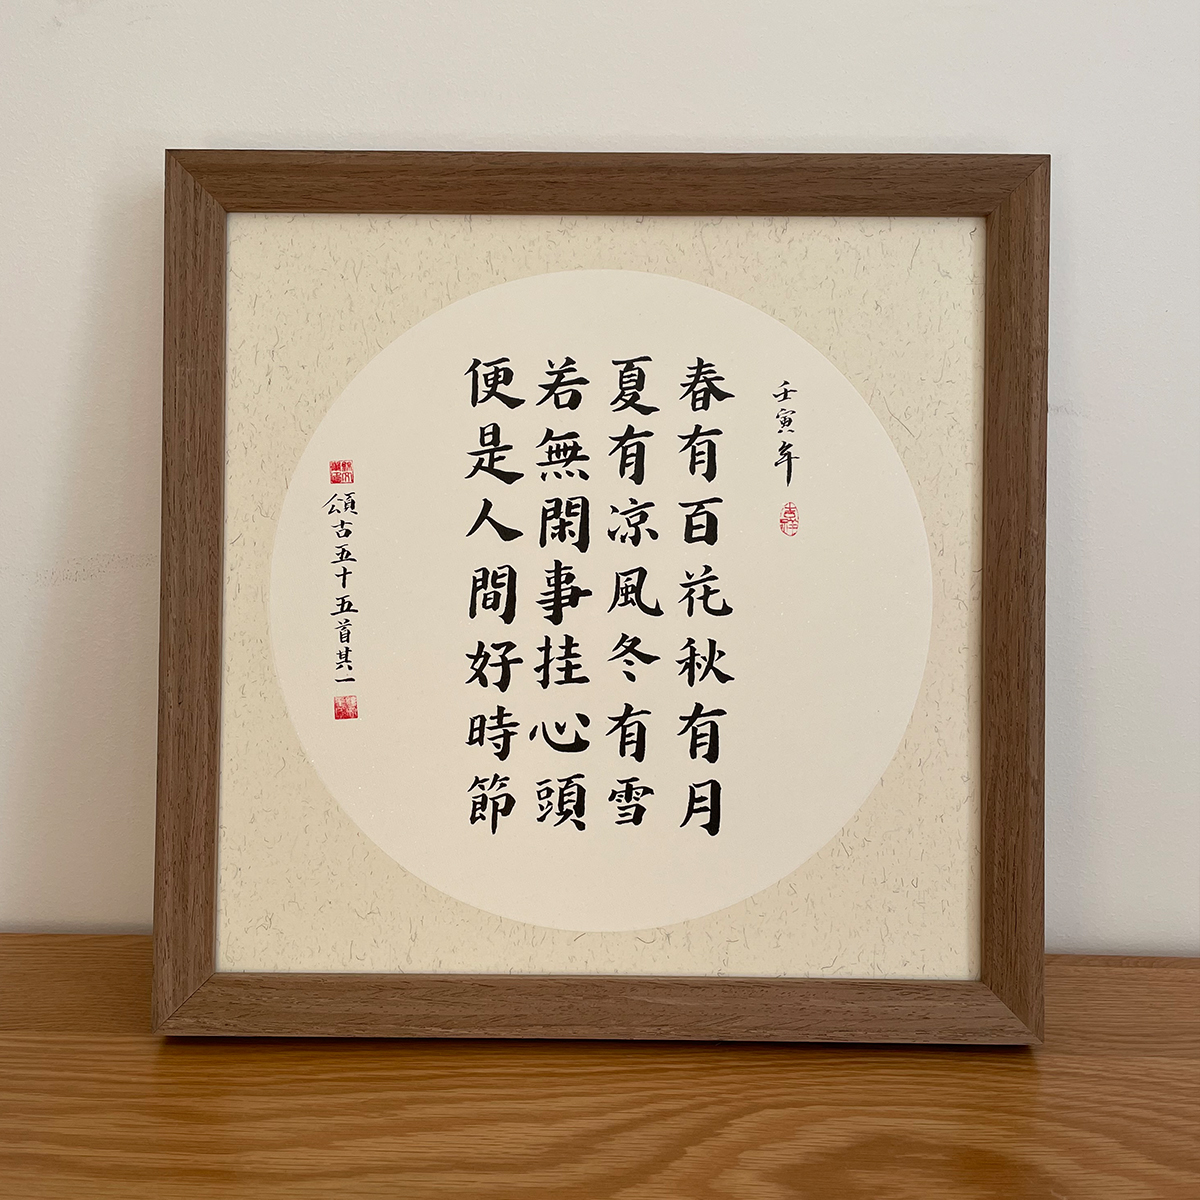 壬寅年
吉祥
春有百花秋有月
夏有凉風冬有雪
若無閑事挂心頭
便是人間好時節
頌古五十五首其一